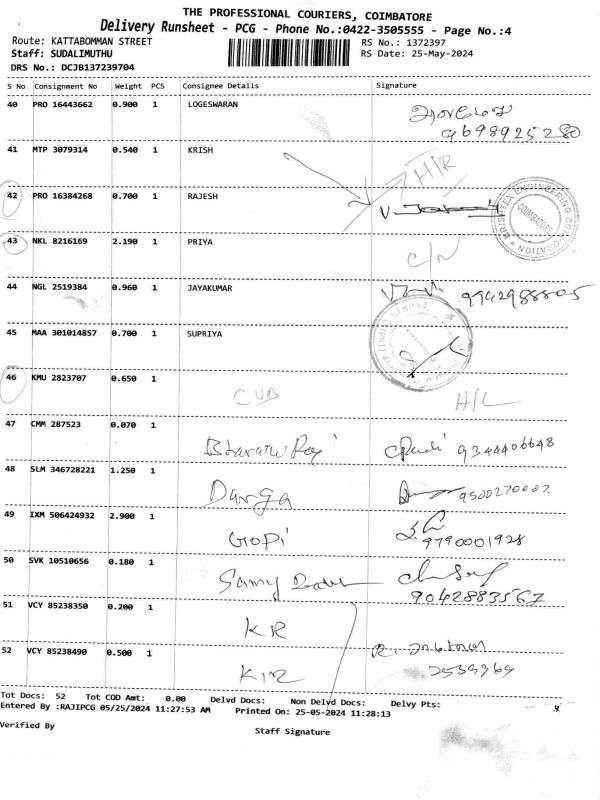 THE PROFESSIONAL COURIERS, COIMBATORE
Delivery Runsheet - PCG - Phone No.:0422-3505555 - Page No.:4
Route: KATTABOMMAN STREET RS No.: 1372397
Staff: SUDALIMUTHU RS Date: 25-May-2024
DRS No.: DCJB137239704
S No Consignment No Weight PCS Consignee Details Signature
40 PRO 16443662 0.900 1 LOGESWARAN
9698925280
41 MTP 3079314 0.540 1 KRISH
H/R
42 PRO 16384268 0.700 1 RAJESH
KRISHTEX ENGINEERING CORPORATION COIMBATORE
43 NKL 8216169 2.190 1 PRIYA
C/N
44 NGL 2519384 0.960 1 JAYAKUMAR 9942988805
45 MAA 301014857 0.700 1 SUPRIYA
46 KMU 2823707 0.650 1
CUB H/L
47 CMM 287523 0.070 1
Bharath Raj 9344406648
48 SLM 346728221 1.250 1
Darga 9500270007
49 IXM 506424932 2.900 1
Gopi 9790001928
50 SVK 10510656 0.180 1
Samy 9042883567
51 VCY 85238350 0.200 1
KR
52 VCY 85238490 0.500 1
KR 2535969
Tot Docs: 52 Tot COD Amt: 0.00 Delvd Docs: Non Delvd Docs: Delvy Pts:
Entered By :RAJIPCG 05/25/2024 11:27:53 AM Printed On: 25-05-2024 11:28:13
Verified By Staff Signature